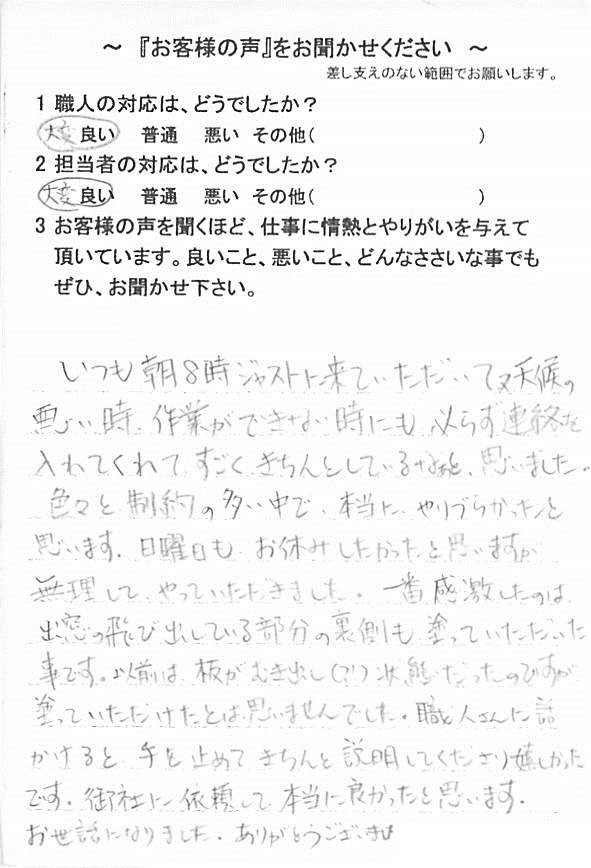 ～ 『お客様の声』をお聞かせください ～
差し支えのない範囲でお願いします。
1 職人の対応は、どうでしたか？
大変良い 普通 悪い その他( )
2 担当者の対応は、どうでしたか？
大変良い 普通 悪い その他( )
3 お客様の声を聞くほど、仕事に情熱とやりがいを与えて
頂いています。良いこと、悪いこと、どんなささいな事でも
ぜひ、お聞かせ下さい。
いつも朝8時ジャストに来ていただいて又天候の
悪い時、作業ができない時にも 必らず連絡を
入れてくれて すごくきちんとしているなぁと、思いました。
色々と制約の多い中で、本当に、やりづらかったと
思います。日曜日も お休みしたかったと思いますが
無理して、やっていただきました。一番感激したのは
出窓の飛び出している部分の裏側も 塗っていただいた
事です。以前は 板がむき出し(?!)状態だったのですが
塗っていただけたとは思いませんでした。職人さんに話
かけると 手を止めて きちんと説明してくださり嬉しかった
です。御社に依頼して本当に良かったと思います。
お世話になりました。ありがとうございま